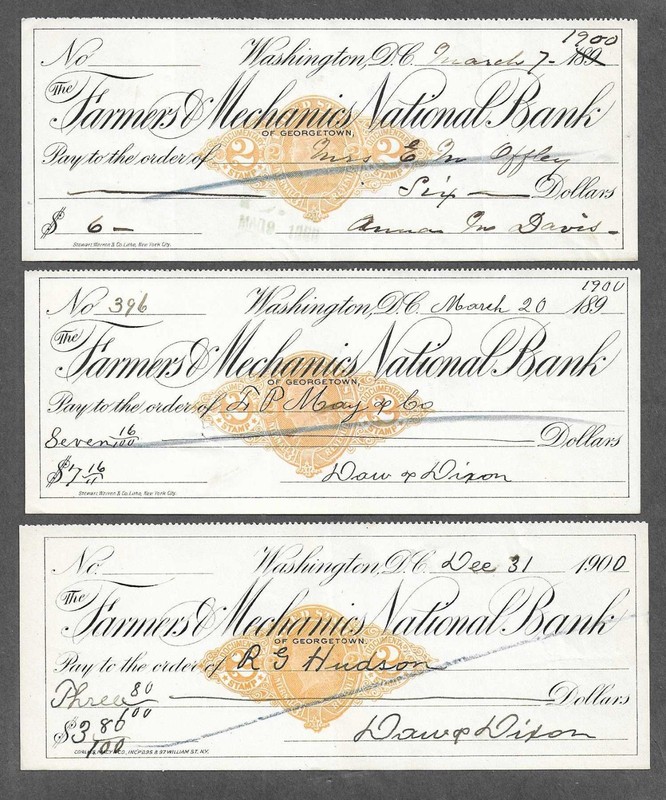 No
Washington, D.C. March 7- 1900 189
The
Farmers & Mechanics National Bank
OF GEORGETOWN,
Pay to the order of Mrs E M Offley
2 2
STAMP STAMP
Six Dollars
$ 6- Anna M Davis-
Stewart Warren & Co. Litho, New York City.
No 396
Washington, D.C. March 20 189 1900
The
Farmers & Mechanics National Bank
OF GEORGETOWN,
Pay to the order of F P May & Co
2
STAMP STAMP
Seven 16/100 Dollars
$7 16/11 Daw & Dixon
Stewart Warren & Co. Litho, New York City.
No.
Washington, D.C. Dec 31 1900
The
Farmers & Mechanics National Bank
OF GEORGETOWN,
Pay to the order of R G Hudson
2 2
STAMP STAMP
Three 80/100 Dollars
$3 80/100 Daw & Dixon
95 & 97 WILLIAM ST. N.Y.